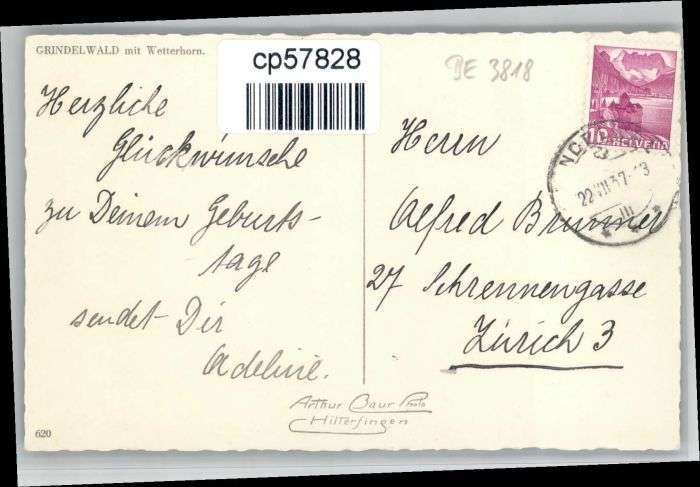 GRINDELWALD mit Wetterhorn.
cp57828
BE 3818
Herzliche
Glückwünsche
zu Deinem Geburts-
tage
sendet Dir
Adeline.
10 HELVETIA
22.VIII.37.-13
III
Herrn
Alfred Brunner
27 Schrennengasse
Zürich 3
Arthur Baur Photo
Hilterfingen
620